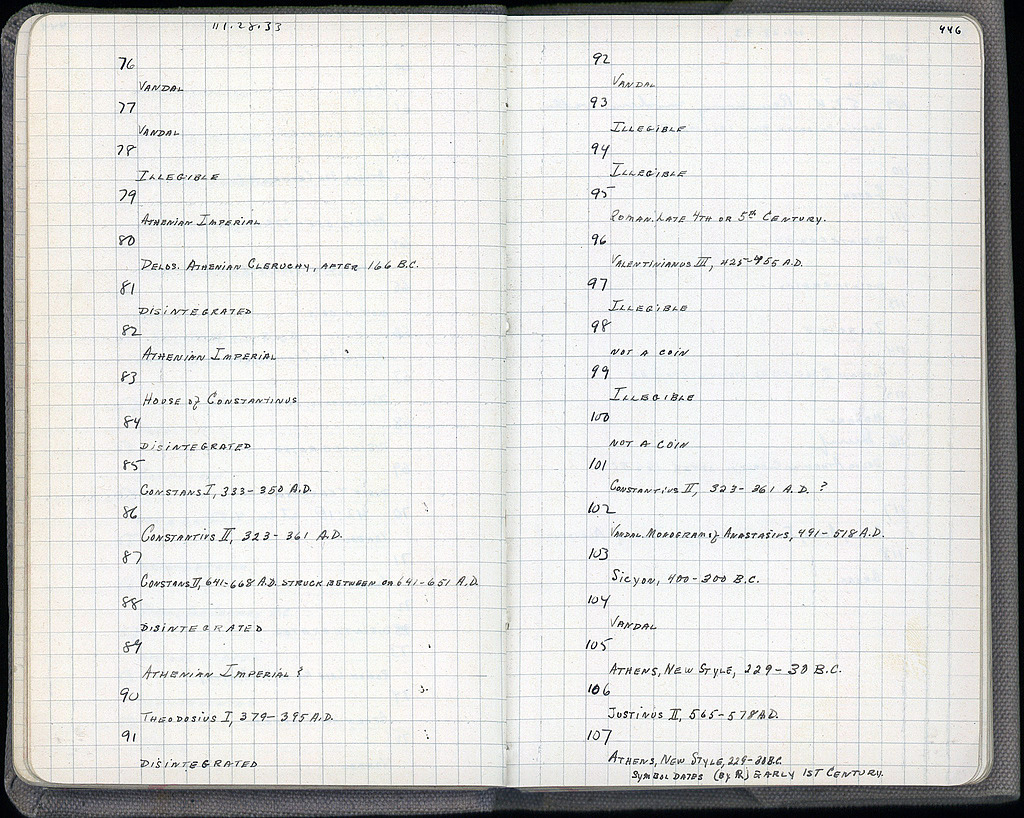 111.28.33
76
VANDAL
77
VANDAL
78
ILLEGIBLE
79
ATHENIAN IMPERIAL
80
DELOS. ATHENIAN CLERUCHY, AFTER 166 B.C.
81
DISINTEGRATED
82
ATHENIAN IMPERIAL
83
HOUSE of CONSTANTINUS
84
DISINTEGRATED
85
CONSTANS I, 333-350 A.D.
86
CONSTANTIVS II, 323-361 A.D.
87
CONSTANS II, 641-668 A.D. STRUCK BETWEEN 641-651 A.D.
88
DISINTEGRATED
89
ATHENIAN IMPERIAL?
90
THEODOSIUS I, 379-395 A.D.
91
DISINTEGRATED
446
92
VANDAL
93
ILLEGIBLE
94
ILLEGIBLE
95
ROMAN. LATE 4TH OR 5th CENTURY.
96
VALENTINIANUS III, 425-455 A.D.
97
ILLEGIBLE
98
NOT A COIN
99
ILLEGIBLE
100
NOT A COIN
101
CONSTANTIUS II, 323-361 A.D. ?
102
VANDAL. MONOGRAM of ANASTASIUS, 491-518 A.D.
103
SICYON, 400-300 B.C.
104
VANDAL
105
ATHENS, NEW STYLE, 229-30 B.C.
106
JUSTINUS II, 565-578 A.D.
107
ATHENS, NEW STYLE, 229-30 B.C.
SYMBOL DATES (BY R) EARLY 1ST CENTURY.